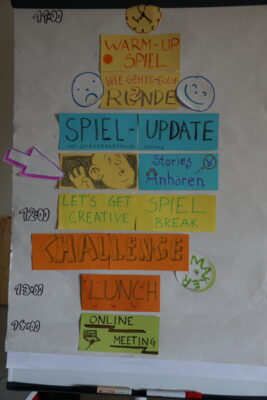 11:00
WARM-UP
SPIEL
WIE GEHT'S EUCH
RUNDE
SPIEL-UPDATE
Stories
Anhören
12:00
LET'S GET
CREATIVE
SPIEL
BREAK
CHALLENGE
13:00
LUNCH
14:00
ONLINE
MEETING